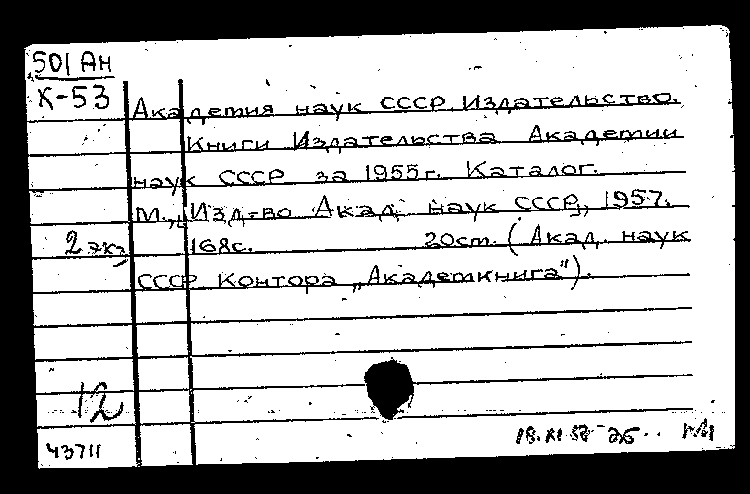 501 Ан
К-53
Академия наук СССР. Издательство.
Книги Издательства Академии
наук СССР за 1955 г. Каталог.
М., [Изд-во Акад. наук СССР], 1957.
2 экз
168с. 20см. (Акад. наук
СССР Контора „Академкнига").
12
43711
18.XI 58